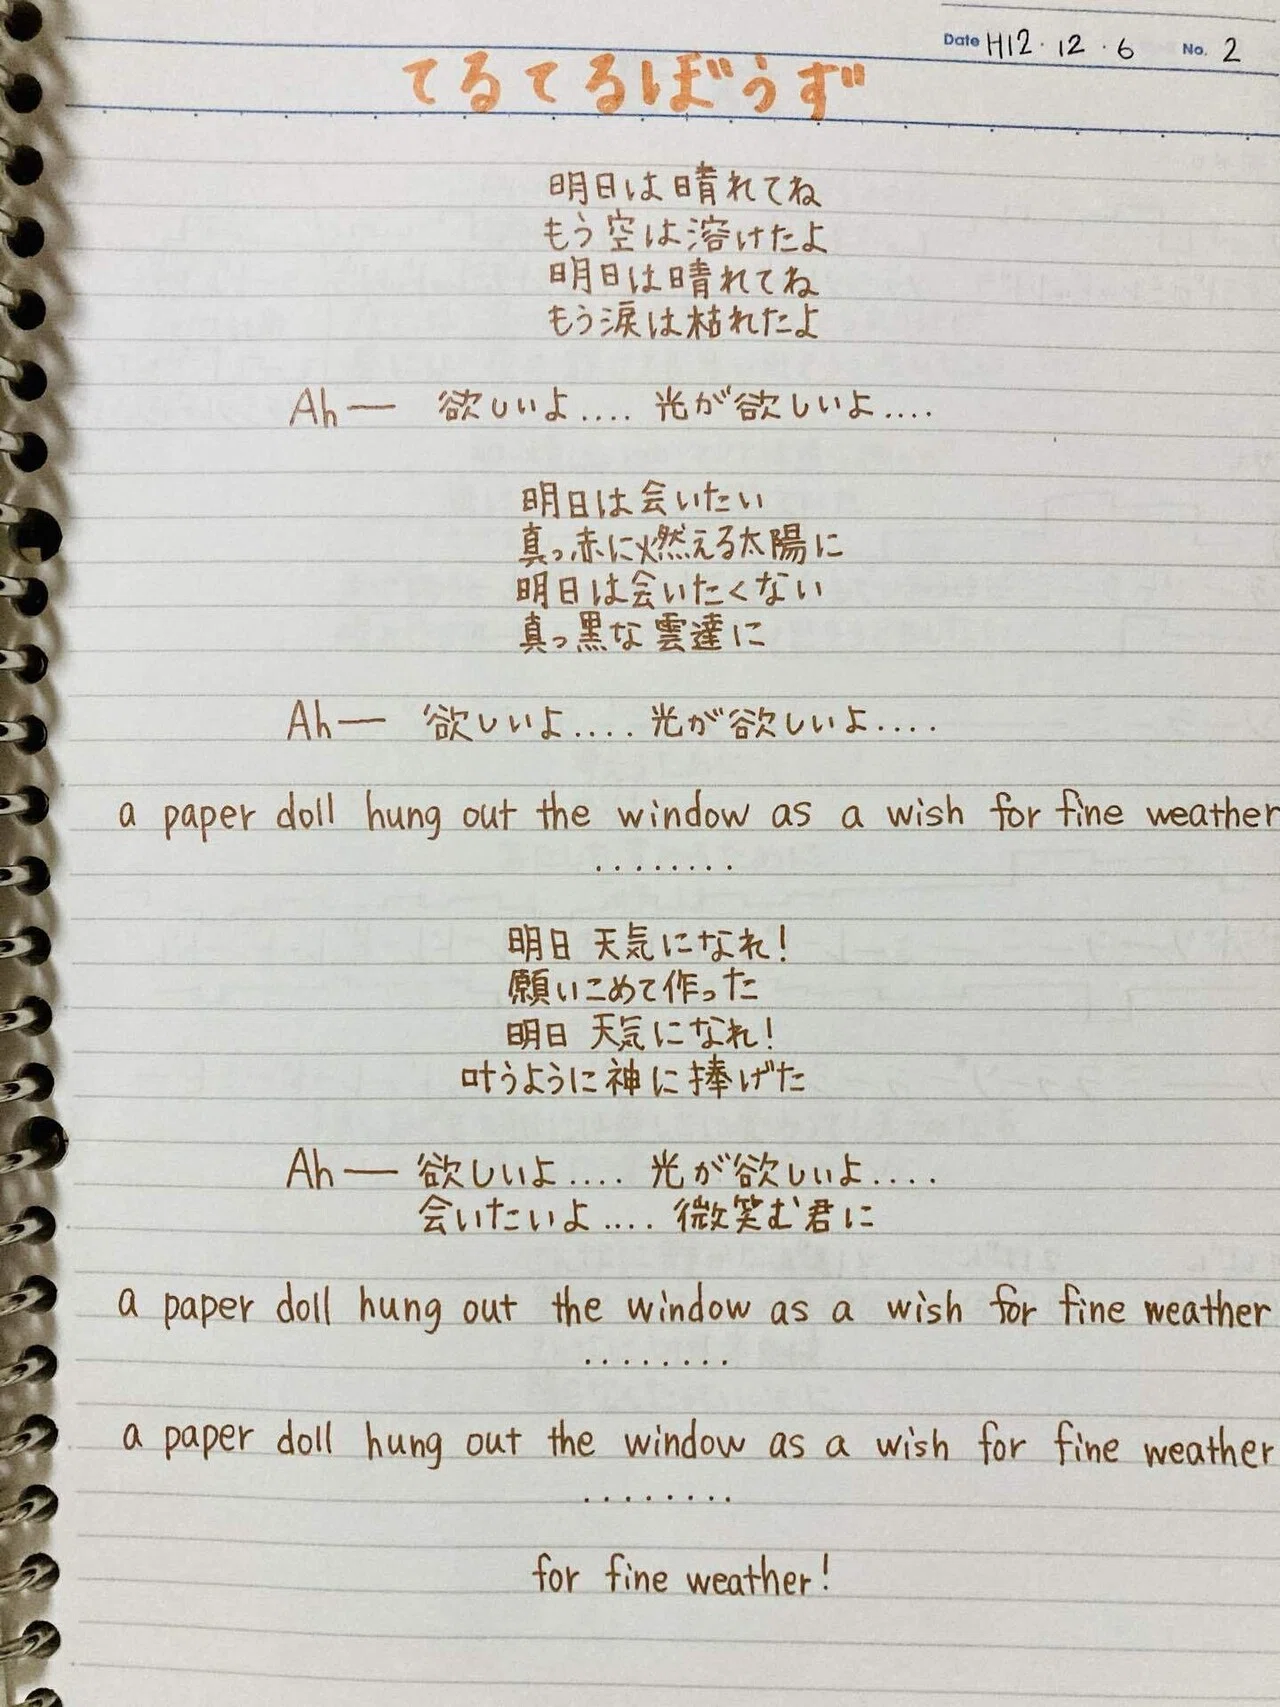 Date H12・12・6 No. 2
てるてるぼうず
明日は晴れてね
もう空は溶けたよ
明日は晴れてね
もう涙は枯れたよ
Ah― 欲しいよ.... 光が欲しいよ....
明日は会いたい
真っ赤に燃える太陽に
明日は会いたくない
真っ黒な雲達に
Ah― 欲しいよ.... 光が欲しいよ....
a paper doll hung out the window as a wish for fine weather
........
明日 天気になれ!
願いこめて作った
明日 天気になれ!
叶うように神に捧げた
Ah― 欲しいよ.... 光が欲しいよ....
会いたいよ.... 微笑む君に
a paper doll hung out the window as a wish for fine weather
........
a paper doll hung out the window as a wish for fine weather
........
for fine weather!